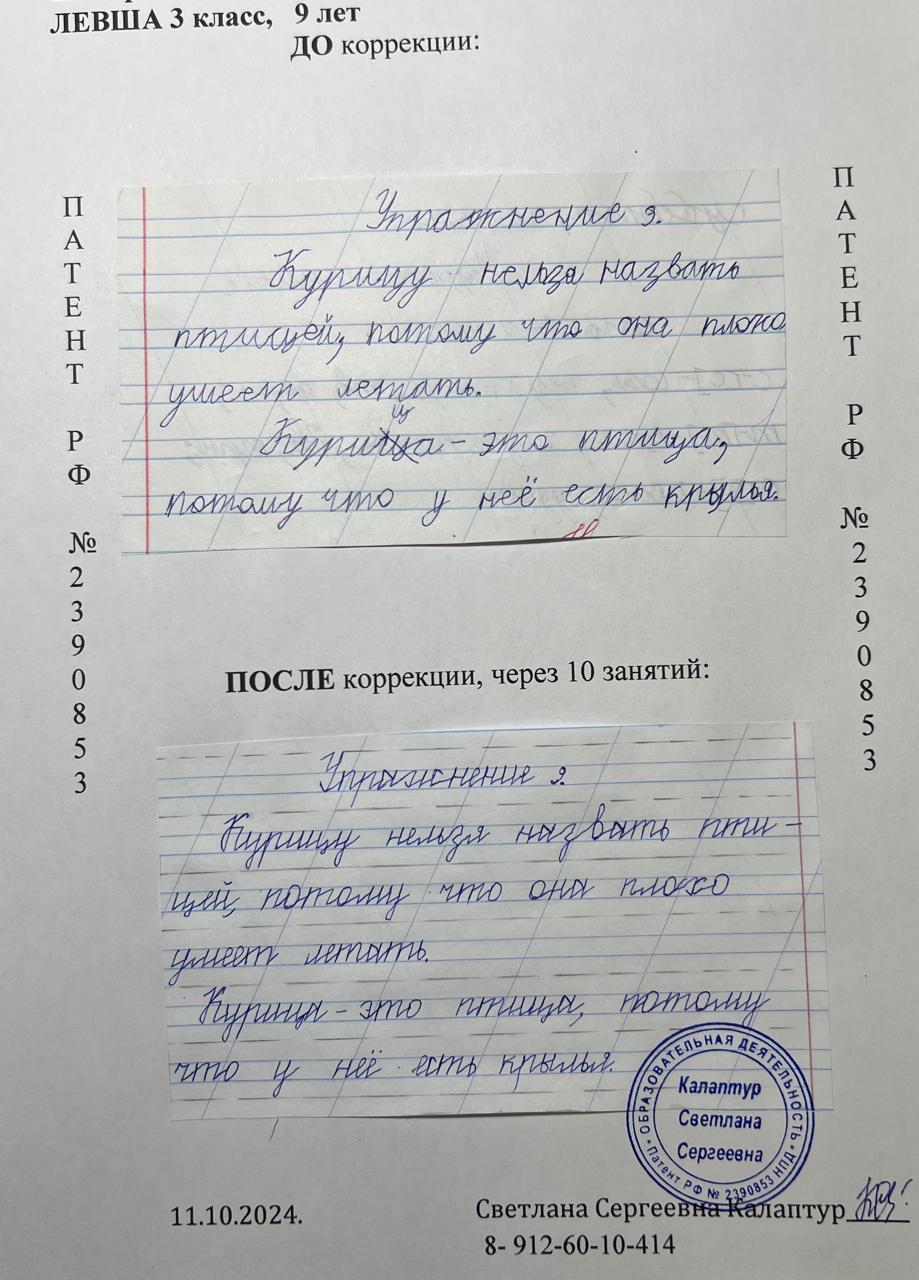 ЛЕВША 3 класс, 9 лет
ДО коррекции:
ПАТЕНТ РФ № 2390853
Упражнение 9.
Курицу нельзя назвать
птицей, потому что она плохо
умеет летать.
Курица - это птица,
потому что у неё есть крылья.
ПАТЕНТ РФ № 2390853
ПОСЛЕ коррекции, через 10 занятий:
Упражнение 9.
Курицу нельзя назвать пти-
цей, потому что она плохо
умеет летать.
Курица - это птица, потому
что у неё есть крылья.
ОБРАЗОВАТЕЛЬНАЯ ДЕЯТЕЛЬНОСТЬ • НПД
Патент РФ № 2390853
Калаптур
Светлана
Сергеевна
11.10.2024.
Светлана Сергеевна Калаптур
8- 912-60-10-414